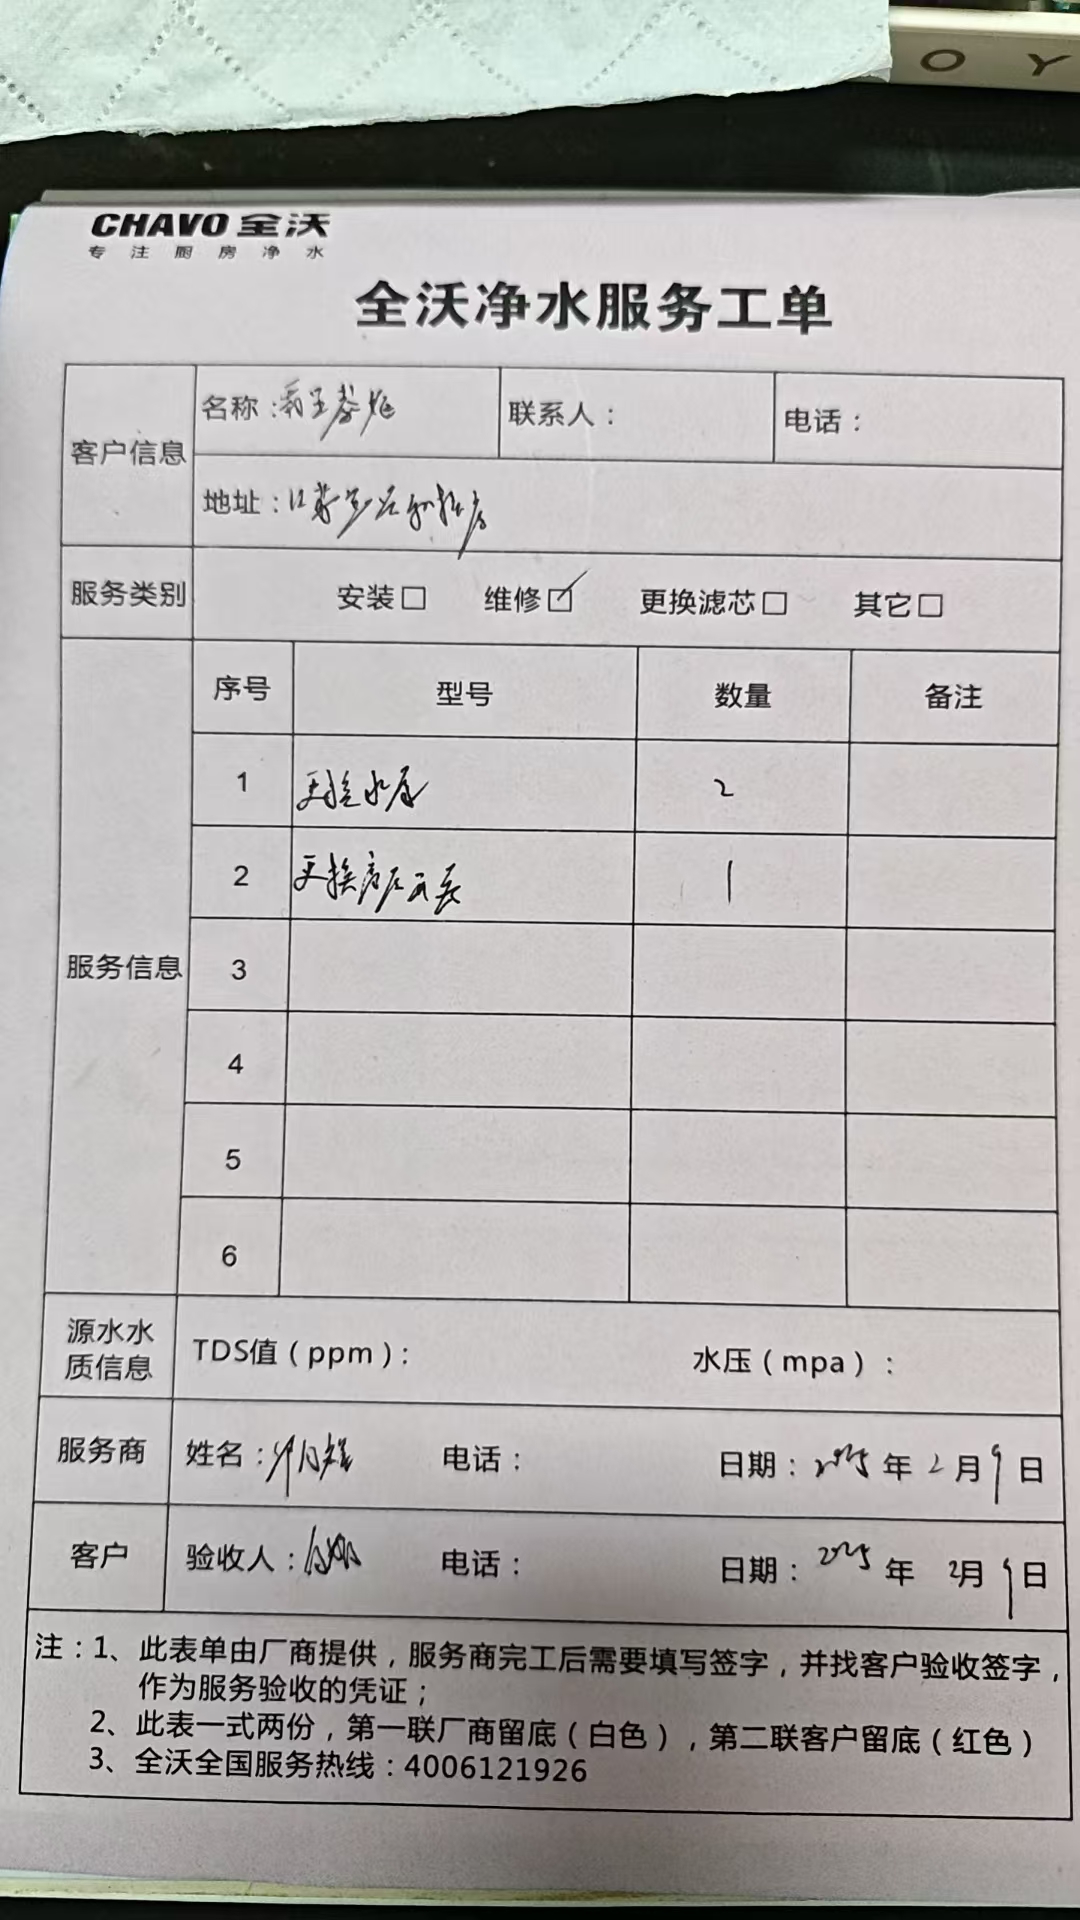 OY
CHAVO 全沃
专注厨房净水
全沃净水服务工单
客户信息
名称：霸王茶姬
联系人：
电话：
地址：江苏
服务类别
安装□ 维修☑ 更换滤芯□ 其它□
服务信息
序号 型号 数量 备注
1 更换水 2
2 更换高压开关 1
3
4
5
6
源水水质信息
TDS值（ppm）：
水压（mpa）：
服务商
姓名： 电话： 日期：2025年2月9日
客户
验收人： 电话： 日期：2025年2月9日
注：1、此表单由厂商提供，服务商完工后需要填写签字，并找客户验收签字，
作为服务验收的凭证；
2、此表一式两份，第一联厂商留底（白色），第二联客户留底（红色）
3、全沃全国服务热线：4006121926